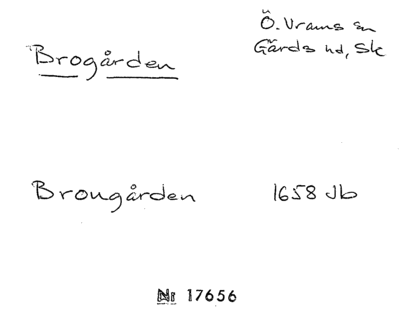 Brogården
Ö. Vrams sn
Gärds hd, Sk
Brougården 1658 Jb
Nr 17656